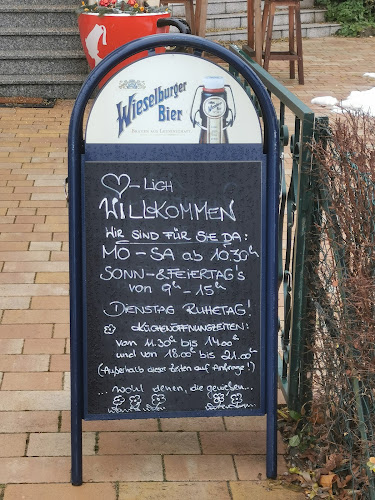 Wieselburger
Bier
-LICH
WILLKOMMEN
WIR SIND FÜR SIE DA:
MO - SA ab 10.30h
SONN- & FEIERTAG's
von 9h - 15h
DIENSTAG RUHETAG!
KÜCHENÖFFNUNGZEITEN:
von 11.30h bis 14.00h
und von 18.00h bis 21.00h
(Außerhalb dieser Zeiten auf Anfrage!)
... wohl denen, die genießen...